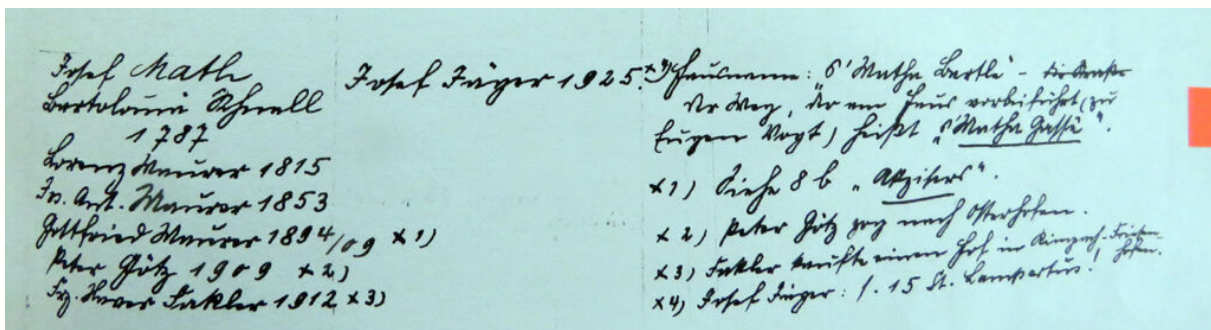 Josef Math
Bartolomä Schnell
1787
Lorenz Maurer 1815
Fr. Ant. Maurer 1853
Gottfried Maurer 1894/09 x 1)
Peter Götz 1909 x 2)
Frz. Xaver Fakler 1912 x 3)
Josef Jäger 1925. x4)
Hausname: s' Matha Bartle - die Straße
der Weg, der am Haus vorbeiführt, (zu
Eugen Vogt) heißt „s'Matha Gässe“.
x1) Siehe 8 b „Akzisers“.
x 2) Peter Götz zog nach Osterhofen.
x3) Fakler kaufte einen Hof in Rimpach-Friesen-
hofen.
x4) Josef Jäger: s. 15 St. Lampartus!